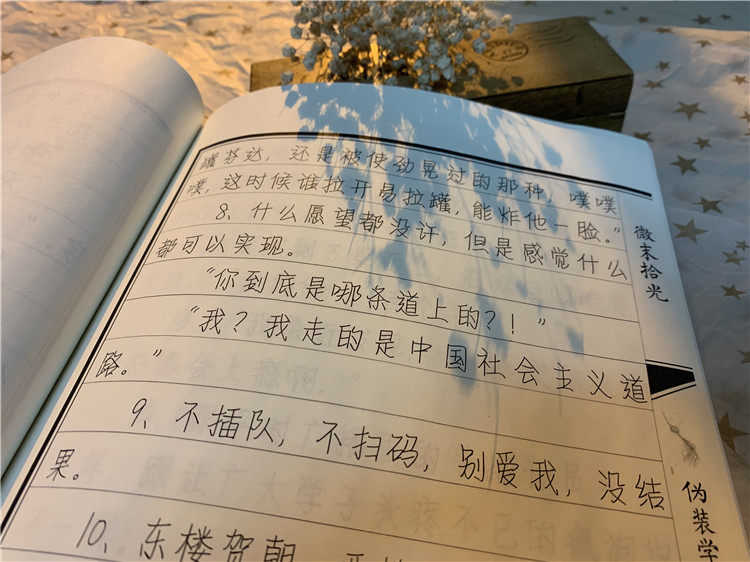 罐芬达，还是被使劲晃过的那种，噗噗
噗，这时候谁拉开易拉罐，能炸他一脸。”
8、什么愿望都没许，但是感觉什么
都可以实现。
“你到底是哪条道上的？！”
“我？我走的是中国社会主义道
路。”
9、不插队，不扫码，别爱我，没结
果。
10、东楼贺朝，
微末拾光
伪装学